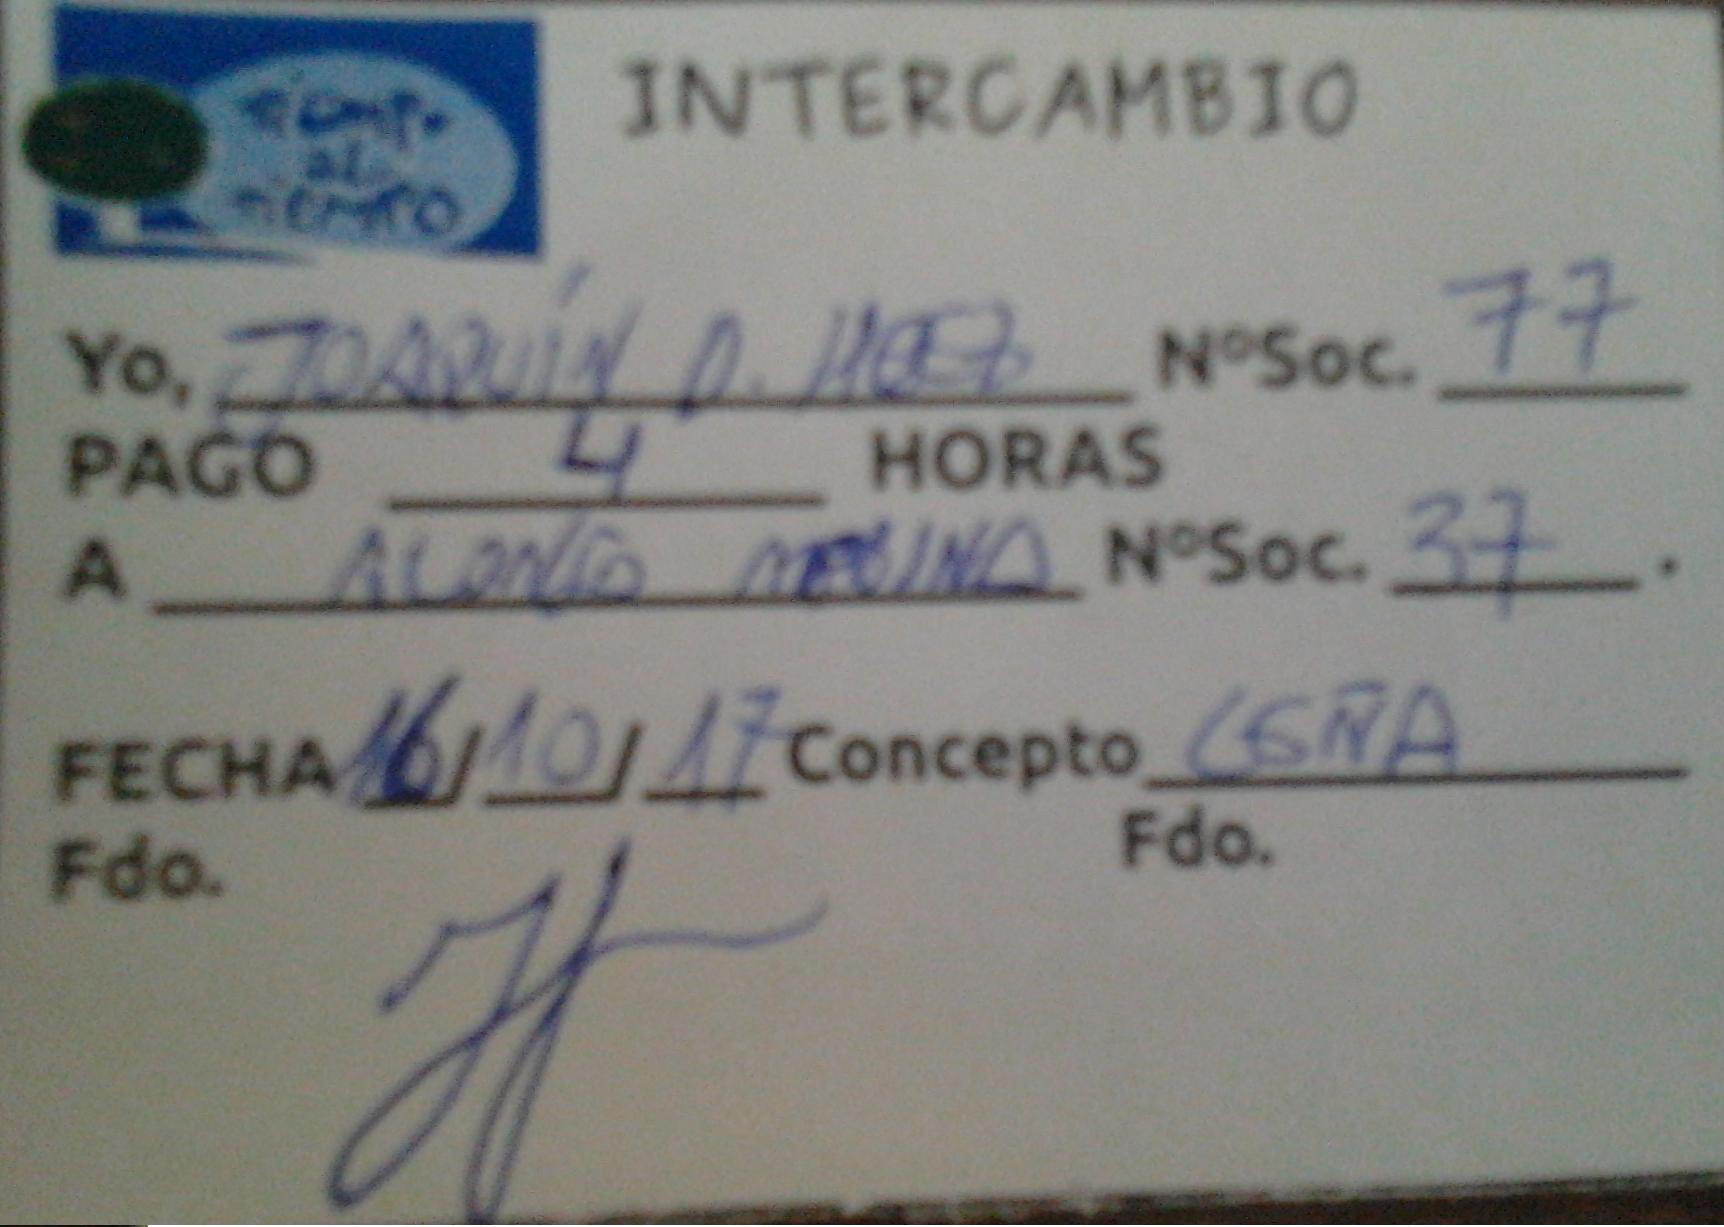 Tiempo
al
tiempo
INTERCAMBIO
Yo, JOAQUÍN D. NºSoc. 77
PAGO 4 HORAS
A ALONSO MEDINA NºSoc. 37.
FECHA 16/10/17 Concepto LEÑA
Fdo. Fdo.